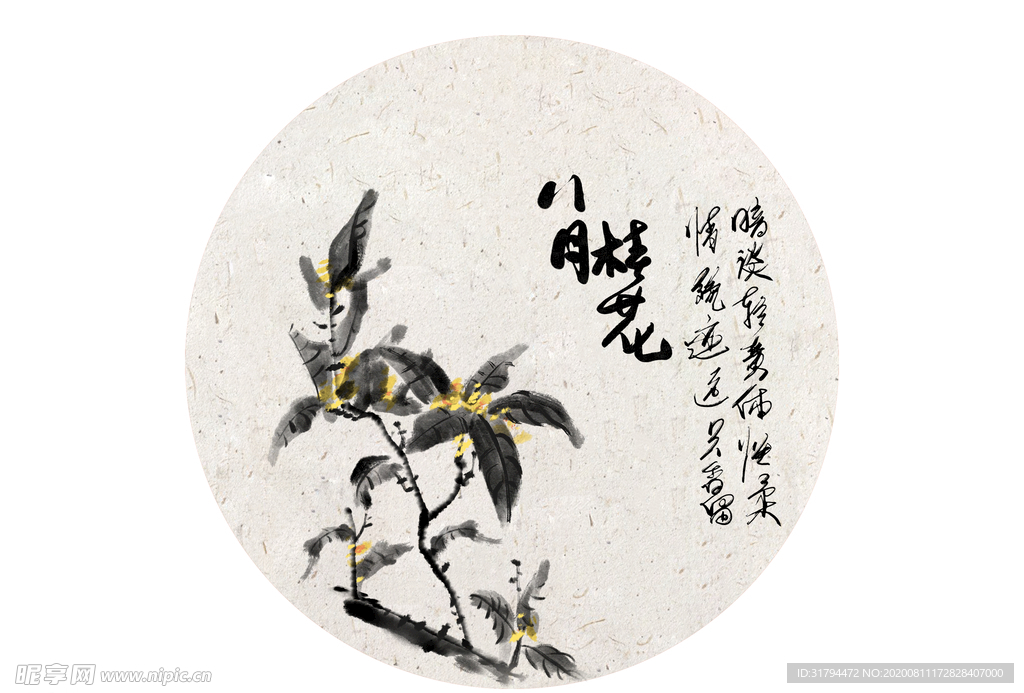 八月
桂花
暗淡轻黄体性柔
情疏迹远只香留
昵享网 www.nipic.cn
ID:31794472 NO:20200811172828407000